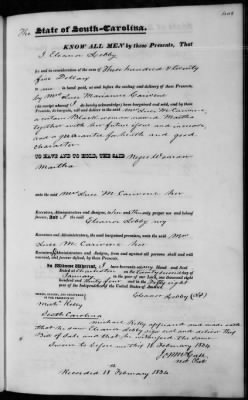 The State of South-Carolina.
KNOW ALL MEN by these Presents, That
I Eleanor Libby
for and in consideration of the sum of Three hundred & Twenty
five Dollars
to me in hand paid, at and before the sealing and delivery of these Presents,
by Mrs Luce Mariane Cairvone
(the receipt whereof I do hereby acknowledge) have bargained and sold, and by these
Presents, do bargain, sell and deliver to the said Mrs Luce M. Cairvone
a certain Black woman named Martha
together with her future issue and increase
and a guarantee for health and good
character
TO HAVE AND TO HOLD, THE SAID Negro Woman
Martha
unto the said Mrs Luce M. Cairvone her
Executors, Administrators and Assigns, to her and their only proper use and behoof
Eleanor Libby my
Executors, Administrators, the said bargained premises, unto the said Mrs
Luce M. Cairvone her
Executors, Administrators and Assigns, from and against all persons shall and will
warrant, and forever defend, by these Presents.
In Witness Whereof, I have hereunto set my Hand and Seal
Dated at Charleston on the Twenty second day of
January in the year of our Lord, one thousand eight
hundred and thirty four and in the Fifty eight
year of the Independence of the United States of America.
SIGNED, SEALED, AND DELIVERED
IN THE PRESENCE OF
Eleanor Libby (LS)
Michl Kelly
South Carolina
Michael Kelly appeared and made oath
that he saw Eleanor Libby sign seal and deliver this
Bill of Sale and that he witnessed the same
Sworn to before me this 18 February 1834
Recorded 18 February 1834